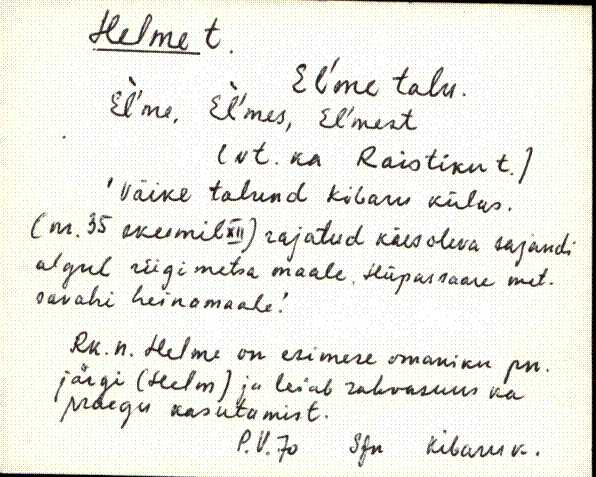 Helme t.
El'me talu.
Èl'me, Èl'mes, El'mest
(vt. ka Raistiku t.)
'Väike talund Kibaru külas.
(nr. 35 skeemil XII) rajatud käesoleva sajandi
algul riigimetsa maale, Hüpassaare met-
savahi heinamaale.'
Rk. n. Helme on esimese omaniku pn.
järgi (Helm) ja leiab rahvasuus ka
praegu kasutamist.
P.V. 70 SJn Kibaru k.